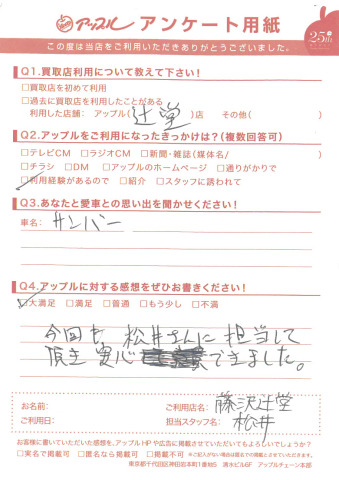 アップル アンケート用紙
25th
この度は当店をご利用いただきありがとうございました。
Q1.買取店利用について教えて下さい！
□買取店を初めて利用
□過去に買取店を利用したことがある
利用した店舗： アップル(辻堂)店 その他( )
Q2.アップルをご利用になったきっかけは？(複数回答可)
□テレビCM □ラジオCM □新聞・雑誌(媒体名/ )
□チラシ □DM □アップルのホームページ □通りがかりで
□利用経験があるので □紹介 □スタッフに誘われて
Q3.あなたと愛車との思い出を聞かせください！
車名： サンバー
Q4.アップルに対する感想をぜひお書きください！
□大満足 □満足 □普通 □もう少し □不満
今回も 松井さんに 担当して
頂き 安心 できました。
お名前： ご利用店名： 藤沢辻堂
ご利用日： 担当スタッフ名： 松井
お客様に書いていただいた感想を、アップルHPや広告に掲載させていただいてもよろしいでしょうか？
□実名で掲載可 □匿名なら掲載可 □掲載不可 ※ご記入がない場合は匿名での掲載とさせていただきます。
東京都千代田区神田岩本町1番地5 清水ビル6F アップルチェーン本部